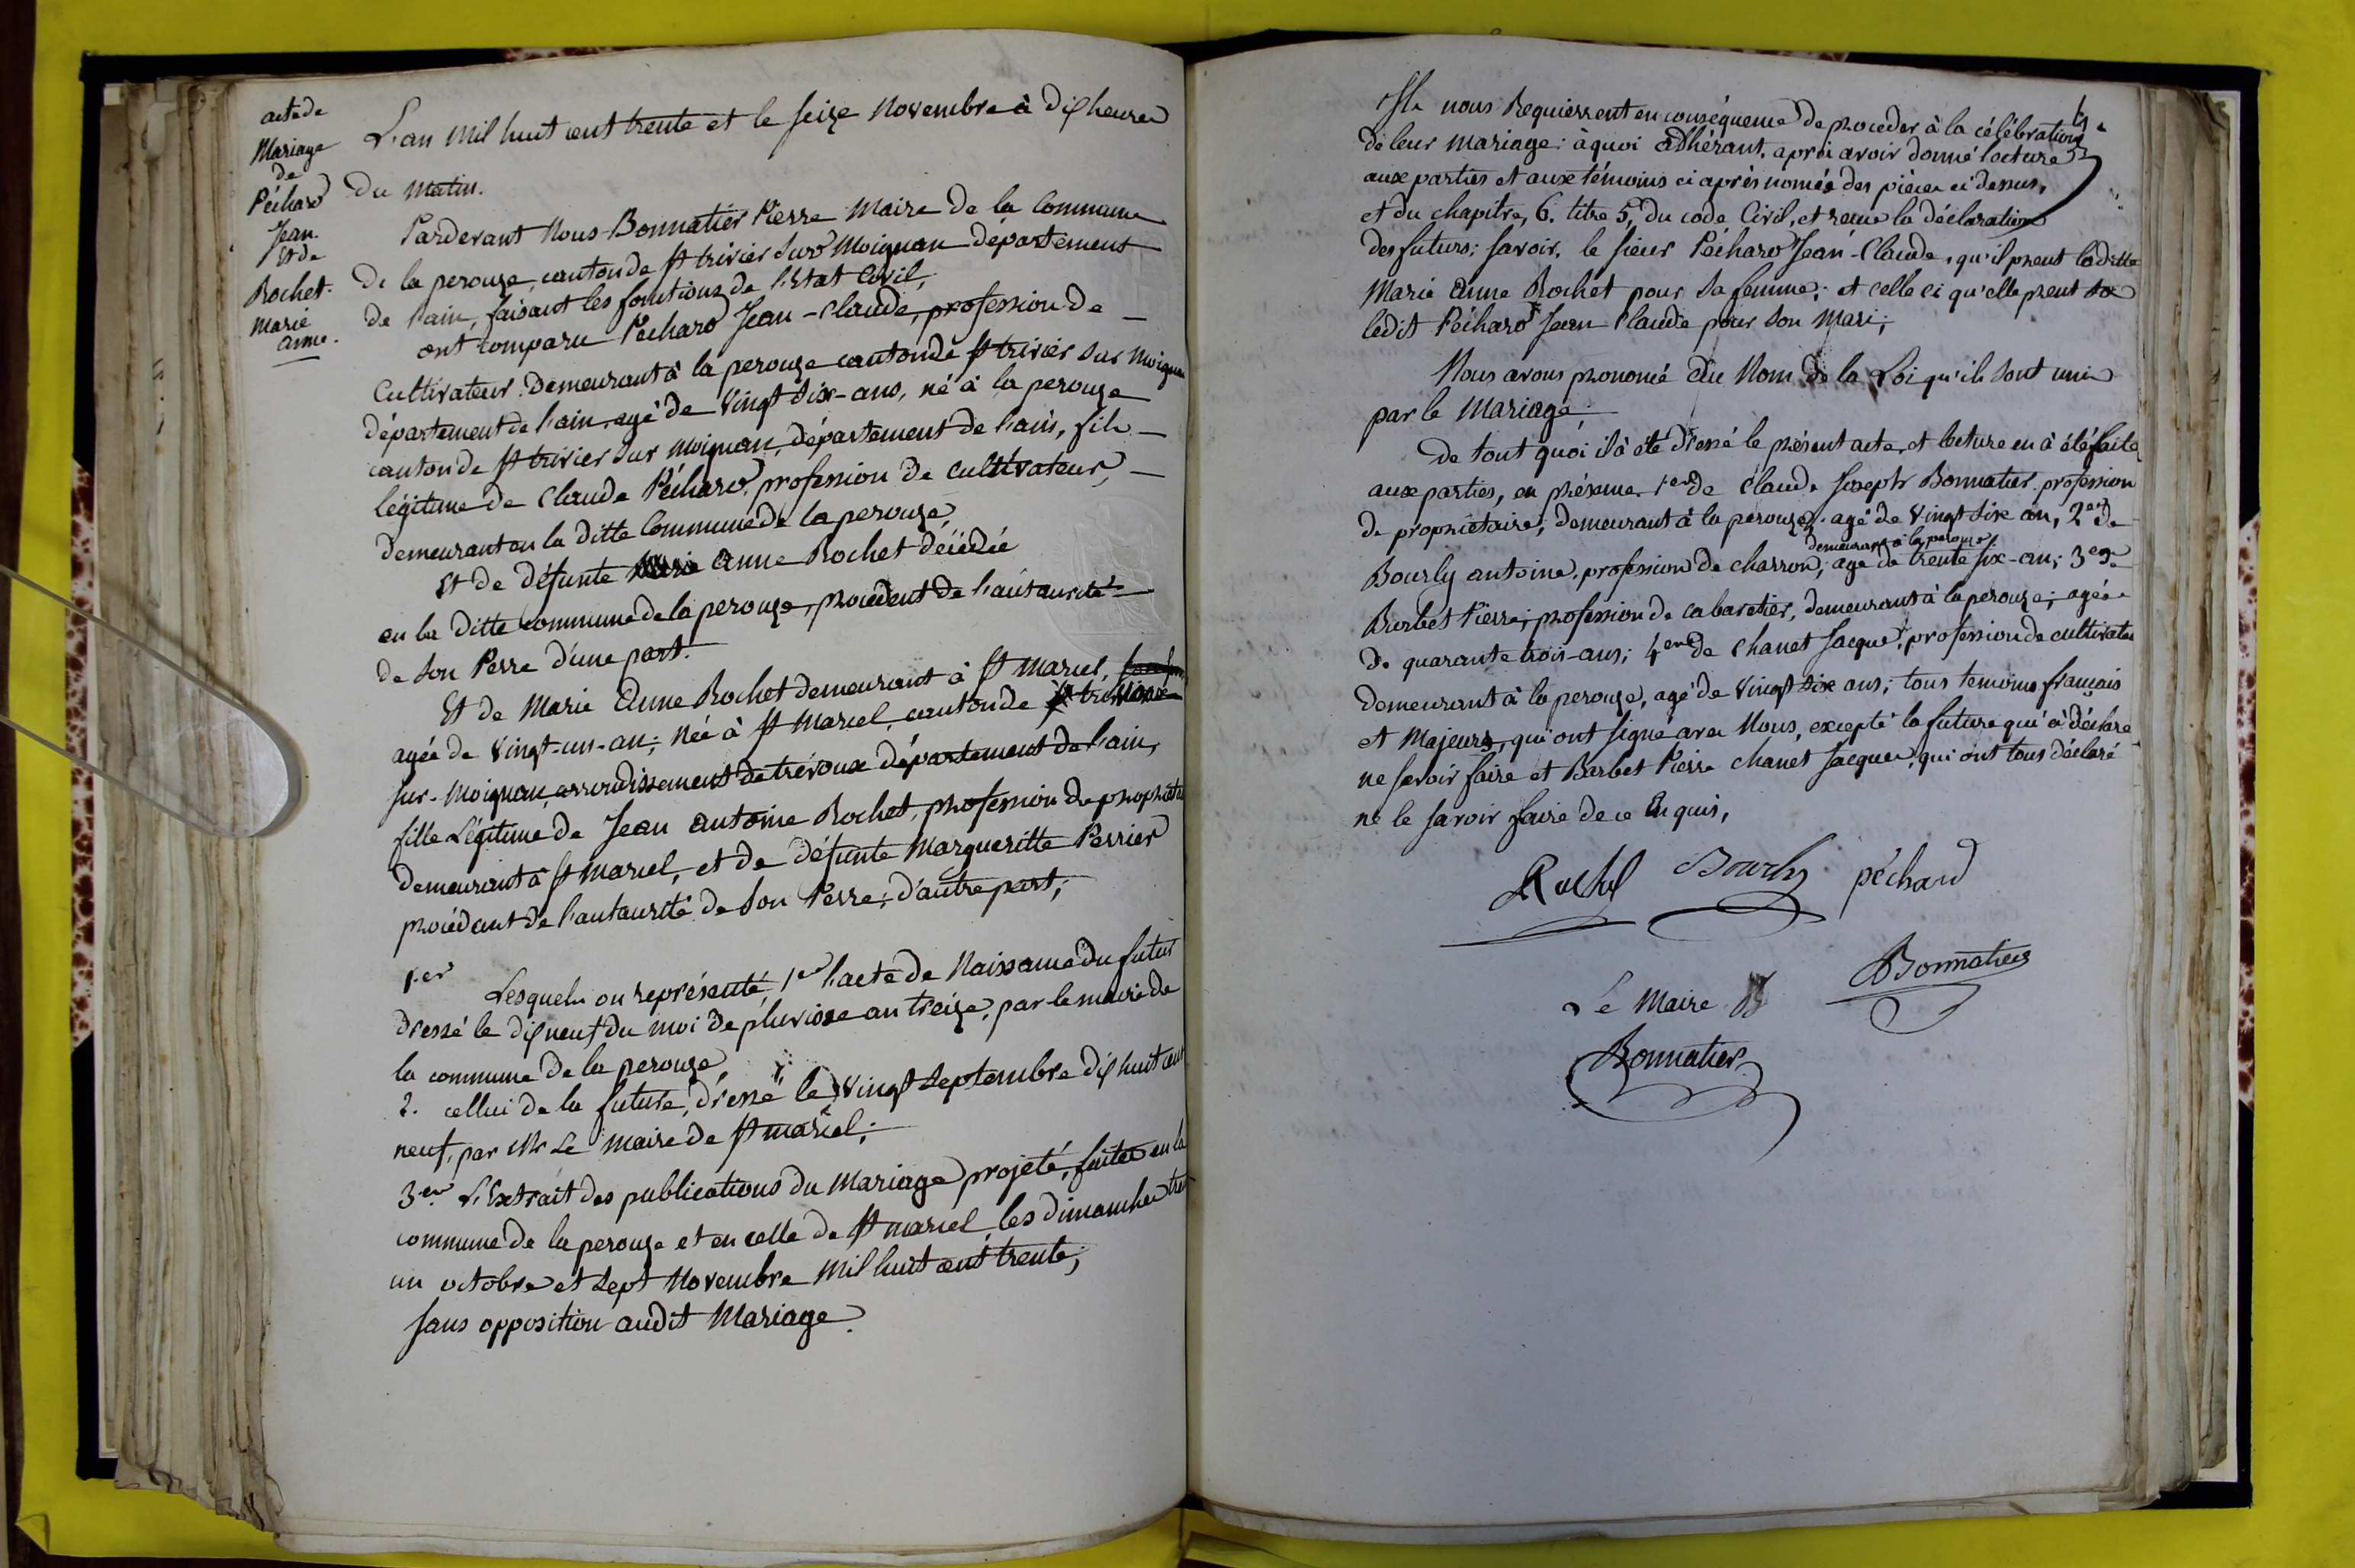 acte de
Mariage
de
Péchard
Jean
Et de
Rochet
Marie
anne.
L'an mil huit cent trente et le seize Novembre à dix heures
du matin.
Pardevant Nous Bonnatier Pierre Maire de la Commune
de la perouze, canton de St trivier sur Moignan departement
de l'ain, faisant les fonctions de l'Etat Civil,
ont comparu Péchard Jean-Claude, profession de
Cultivateur. Demeurant à la perouze canton de St trivier sur Moignan
département de l'ain, agé de vingt six-ans, né à la perouze
canton de St trivier sur moignan, département de l'ain, fils
légitime de Claude Péchard, profession de cultivateur,
demeurant en la ditte Commune de la perouze,
Et de défunte anne Rochet décédée
en la ditte commune de la perouze, procédent de l'autaurité
de son Perre d'une part.
Et de Marie Anne Rochet demeurant à St Marcel,
agée de vingt-un-an; Née à St Marcel, canton de
sur-Moignan, arrondissement de trévoux département de l'ain,
fille Légitime de Jean antoine Rochet, profession de propriétaire
demeurant à St Marcel, et de défunte Margueritte Perrier
procédant de l'autaurité de son Perre, d'autre part;
1.er Lesquels on représenté, 1er l'acte de Naissance du futur
dressé le dix neuf du moi de pluviose an treize, par le maire de
la commune de la perouze,
2. cellui de la future, dressé le vingt septembre dix huit cent
neuf, par Mr Le Maire de St marcel;
3.er L'Extrait des publications du Mariage projeté, faites en la
commune de la perouze et en celle de St marcel, les dimanches trente
un octobre et sept Novembre Mil huit cent trente;
sans opposition audit Mariage.
Ils nous Requierrent en conséquence de proceder à la célébration
de leur mariage: à quoi adhérant, après avoir donné lecture
aux parties et aux témoins ci après només des pièces ci dessus,
et du chapitre, 6. titre 5, du code Civil, et recue la déclaration
des futurs; savoir, le sieur Péchard Jean-Claude, qu'il prent laditte
Marie Anne Rochet pour sa femme; et celle ci qu'elle prent
ledit Péchard Jean Claude pour son Mari;
Nous avons prononcé au Nom de la Loi qu'ils sont unis
par le Mariage;
De tout quoi il à été dressé le présent acte, et lecture en à été faite
aux parties, en présence 1er de Claude Joseph Bonnatier profession
de propriétaire, demeurant à la perouze, agé de vingt six an, 2er de
demeurant à la perouze
Bourly antoine, profession de charron, agé de trente six-an; 3er de
Barbet Pierre, profession de cabaretier, demeurant à la perouze, agée
de quarante trois-ans; 4er de Chanet Jacque, profession de cultivateur
demeurant à la perouze, agé de vingt six ans; tous temoins français
et Majeurs, qui ont signé avec Nous, excepté la future qui à déclaré
ne savoir faire et Barbet Pierre chanet Jacques, qui ont tous déclaré
ne le savoir faire de ce Enquis,
Rochet Bourly péchard
Bonnatier
Le Maire
Bonnatier